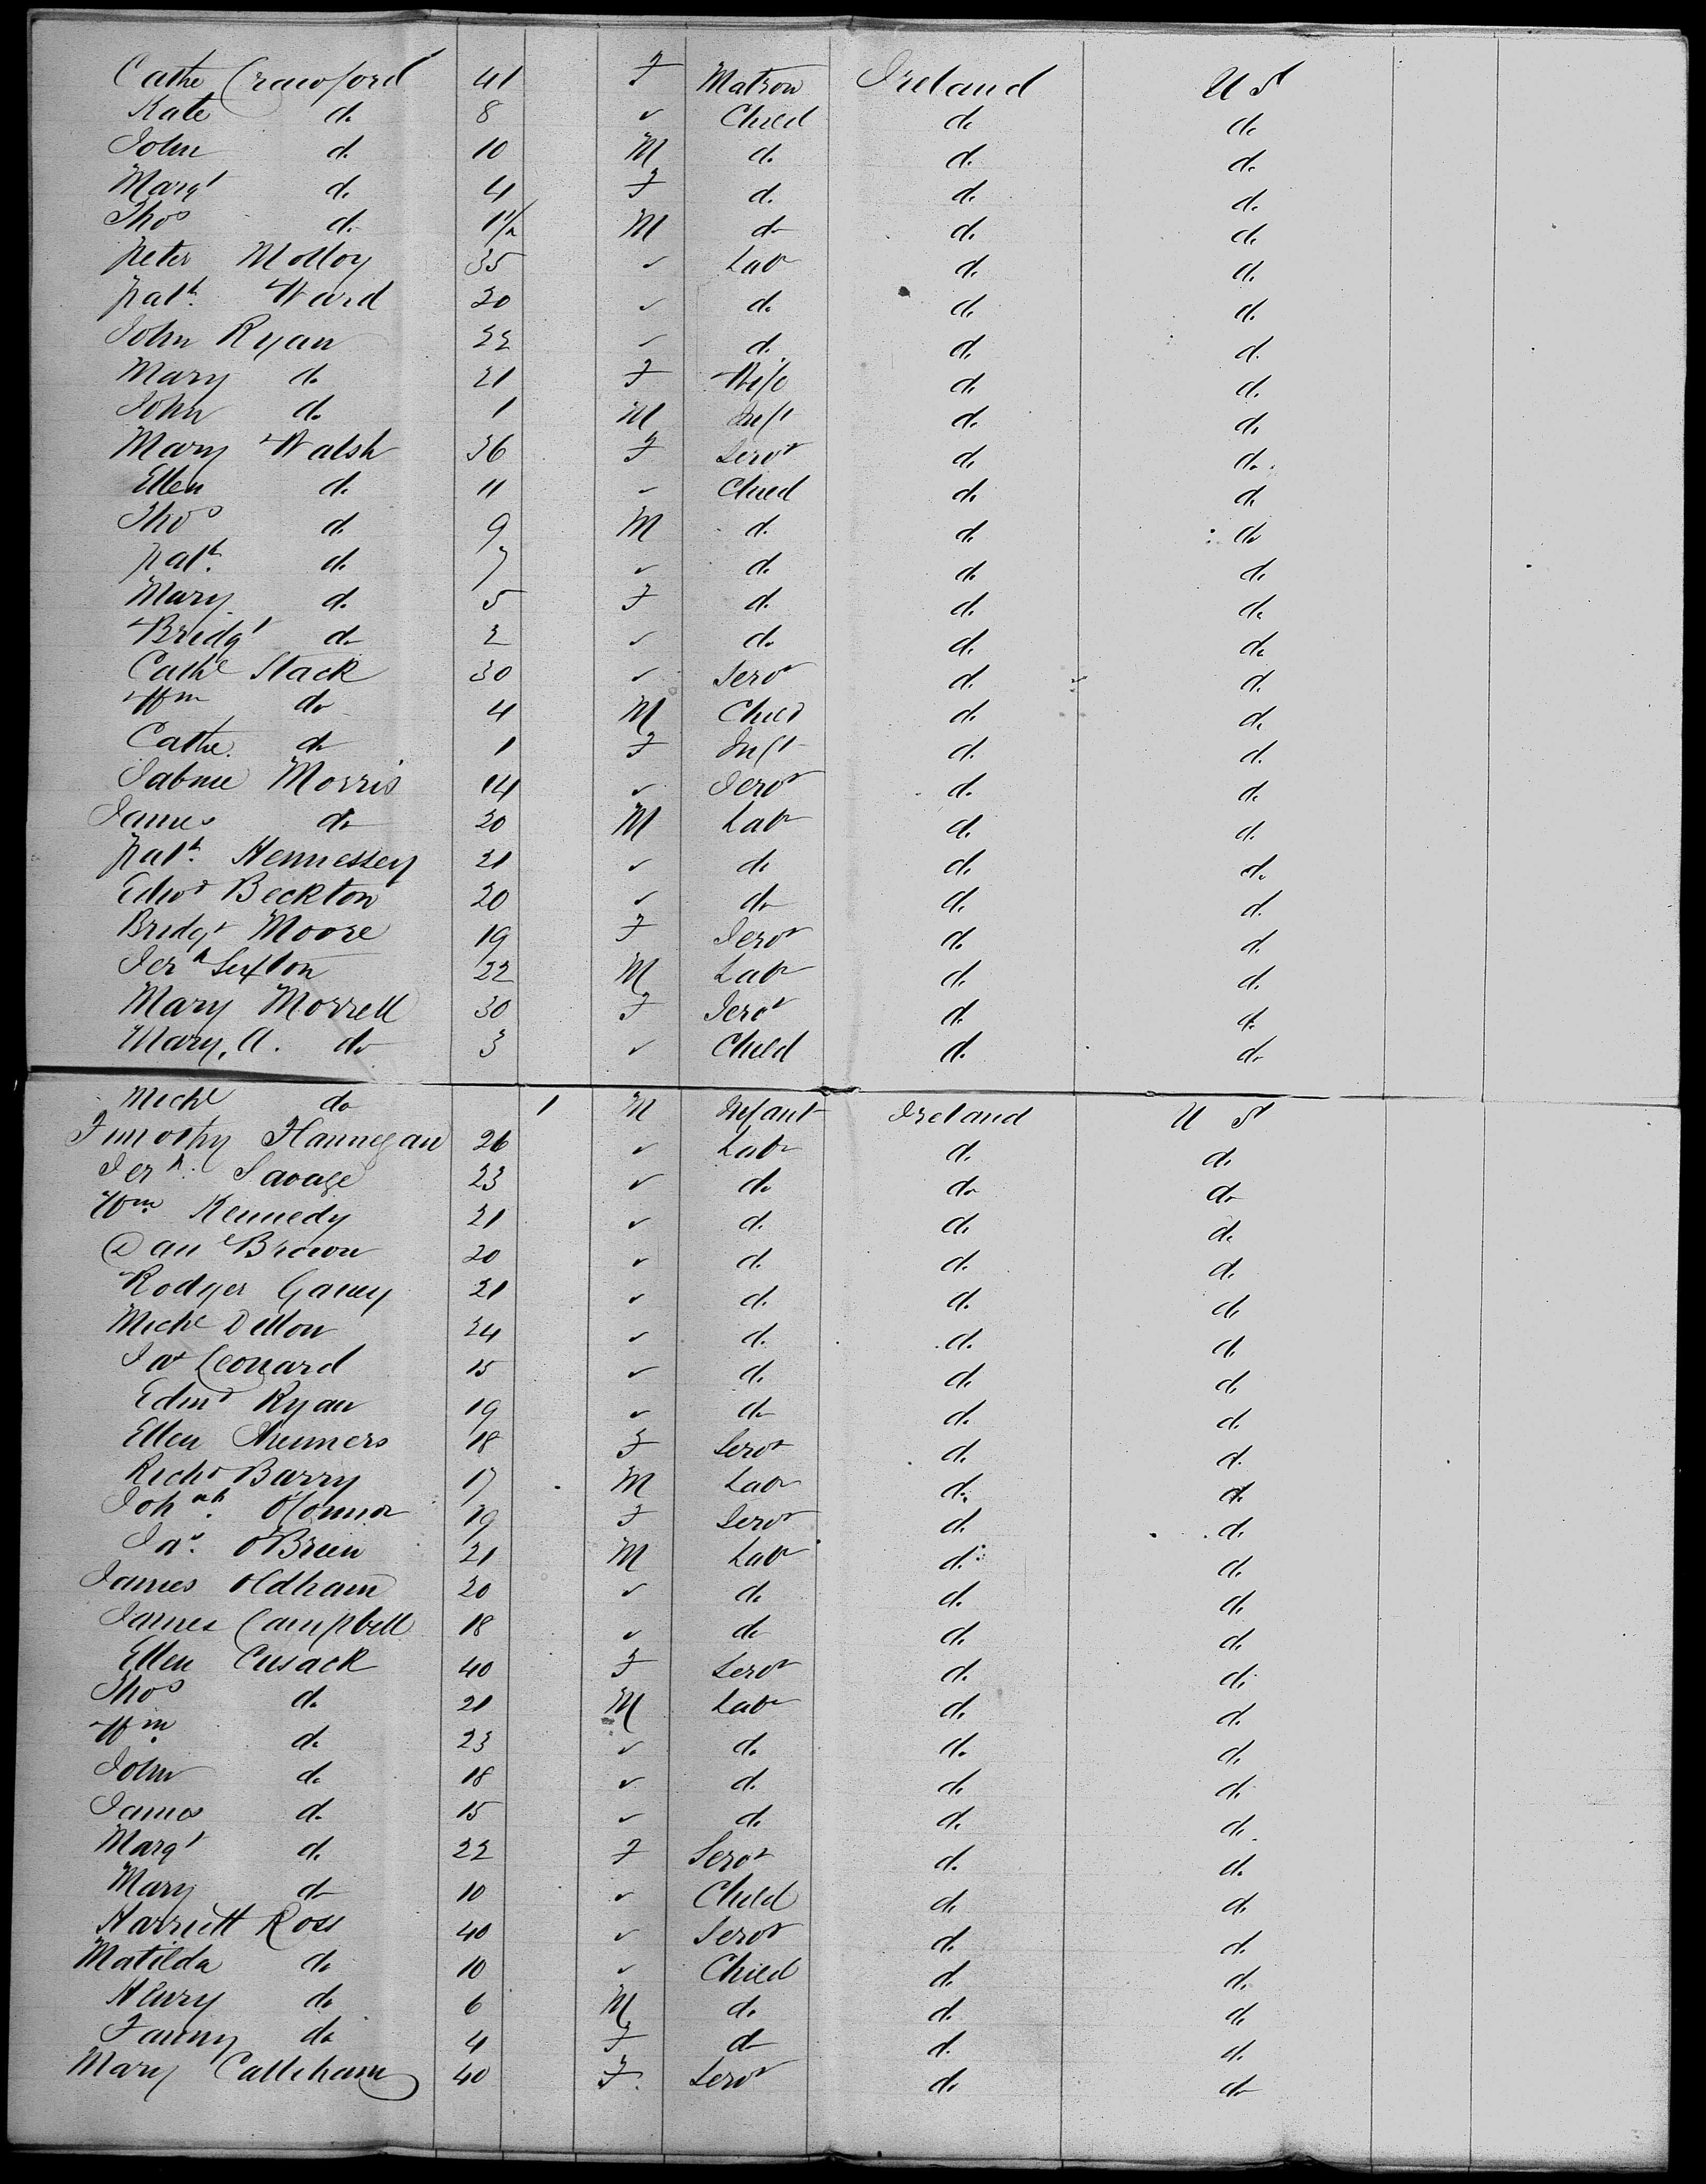 Cathe Crawford 41 F Matron Ireland U S
Kate do 8 ✓ Child do do
John do 10 M do do do
Margt do 4 F do do do
Thos do 1 1/2 M do do do
Peter Molloy 35 ✓ Labr do do
Patk Ward 20 ✓ do do do
John Ryan 22 ✓ do do do
Mary do 21 F Wife do do
John do 1 M Inft do do
Mary Walsh 36 F Servt do do
Ellen do 11 ✓ Child do do
Thos do 9 M do do do
Patk do 7 ✓ do do do
Mary do 5 F do do do
Bridgt do 2 ✓ do do do
Cathe Stack 30 ✓ Servt do do
Wm do 4 M Child do do
Cathe do 1 F Inft do do
Morris 14 ✓ Servt do do
James do 20 M Labr do do
Patk Hennessey 21 ✓ do do do
Edwd Beckton 20 ✓ do do do
Bridgt Moore 19 F Servt do do
Jerh Sexton 22 M Labr do do
Mary Morrell 30 F Servt do do
Mary A. do 3 ✓ Child do do
Michl do 1 M Infant Ireland U S
Timothy Hannegan 26 ✓ Labr do do
Jerh Savage 23 ✓ do do do
Wm Kennedy 21 ✓ do do do
Danl Brown 20 ✓ do do do
Rodger Ganey 21 ✓ do do do
Michl Dillon 24 ✓ do do do
Jas Leonard 15 ✓ do do do
Edmd Ryan 19 ✓ do do do
Ellen 18 F Servt do do
Richd Barry 17 M Labr do do
Johnah O'Connor 19 F Servt do do
Jas O'Brien 21 M Labr do do
James Oldham 20 ✓ do do do
James Campbell 18 ✓ do do do
Ellen Cusack 40 F Servt do do
Thos do 21 M Labr do do
Wm do 23 ✓ do do do
John do 18 ✓ do do do
James do 15 ✓ do do do
Margt do 22 F Servt do do
Mary do 10 ✓ Child do do
Harriett Ross 40 ✓ Servt do do
Matilda do 10 ✓ Child do do
Henry do 6 M do do do
Fanny do 4 F do do do
Mary Calleham 40 F. Servt do do